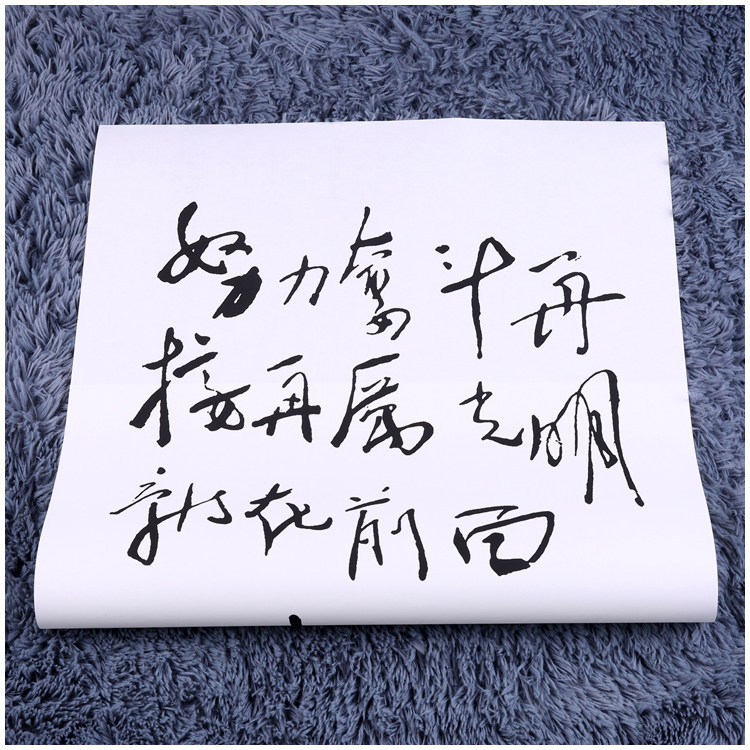 努力奋斗再
接再厉光明
就在前面